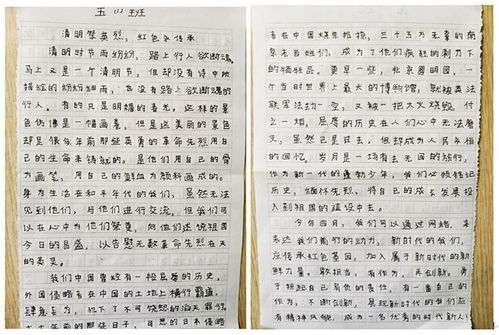 五(1)班
清明祭英烈,红色永传承
清明时节雨纷纷,路上行人欲断魂。
马上又是一个清明节,但却没有诗中所
描绘的纷纷细雨,也没有路上欲断魂的
行人。有的只是明媚的春光。这样的景
色仿佛是一幅画卷,但是这美丽的景色
却是很多年前那些英勇的革命先烈用自
己的生命来铸就的,是他们用自己的骨
为画笔,用自己的鲜血为颜料画成的。
身为生活在和平年代的我们,虽然无法
见到他们,与他们进行交流,但我们可
以在心中为他们祭奠,向他们述说祖国
今日的昌盛,以告慰无数革命先烈在天
的英灵。
我们中国曾经有一段屈辱的历史,
外国侵略者在中国的土地上横行霸道,
肆意妄为,犯下了不可饶恕的滔天罪行。
十九年前的那些日子,可恶的日本侵略
者在中国烧杀抢掠,三十多万无辜的南
京老百姓们,成为了他们疯狂的刺刀下
的牺牲品。更早一些,北京圆明园,一
个当时世界上最大的博物馆,就被英法
联军洗劫一空,又被一把大火烧毁,付
之一炬。屈辱的历史在人们心中无法磨
灭,虽然已是过去,但却成为人民永恒
的回忆,岁月是一场有去无回的旅行,
作为新一代的蓬勃少年,我们必须铭记
历史,缅怀先烈,将自己的成长发展投
入到祖国的建设中去。
今年四月,我们可以通过网络,来
表达我们前行的动力,新时代的我们,
应传承红色基因,加入属于新时代的新
鲜力量,敢担当,有作为,再创新,勇
于担起自己肩负的责任,有一番自己的
作为,不断创新,展现新时代的我们应
有精神风貌,成为一名优秀的时代新人!